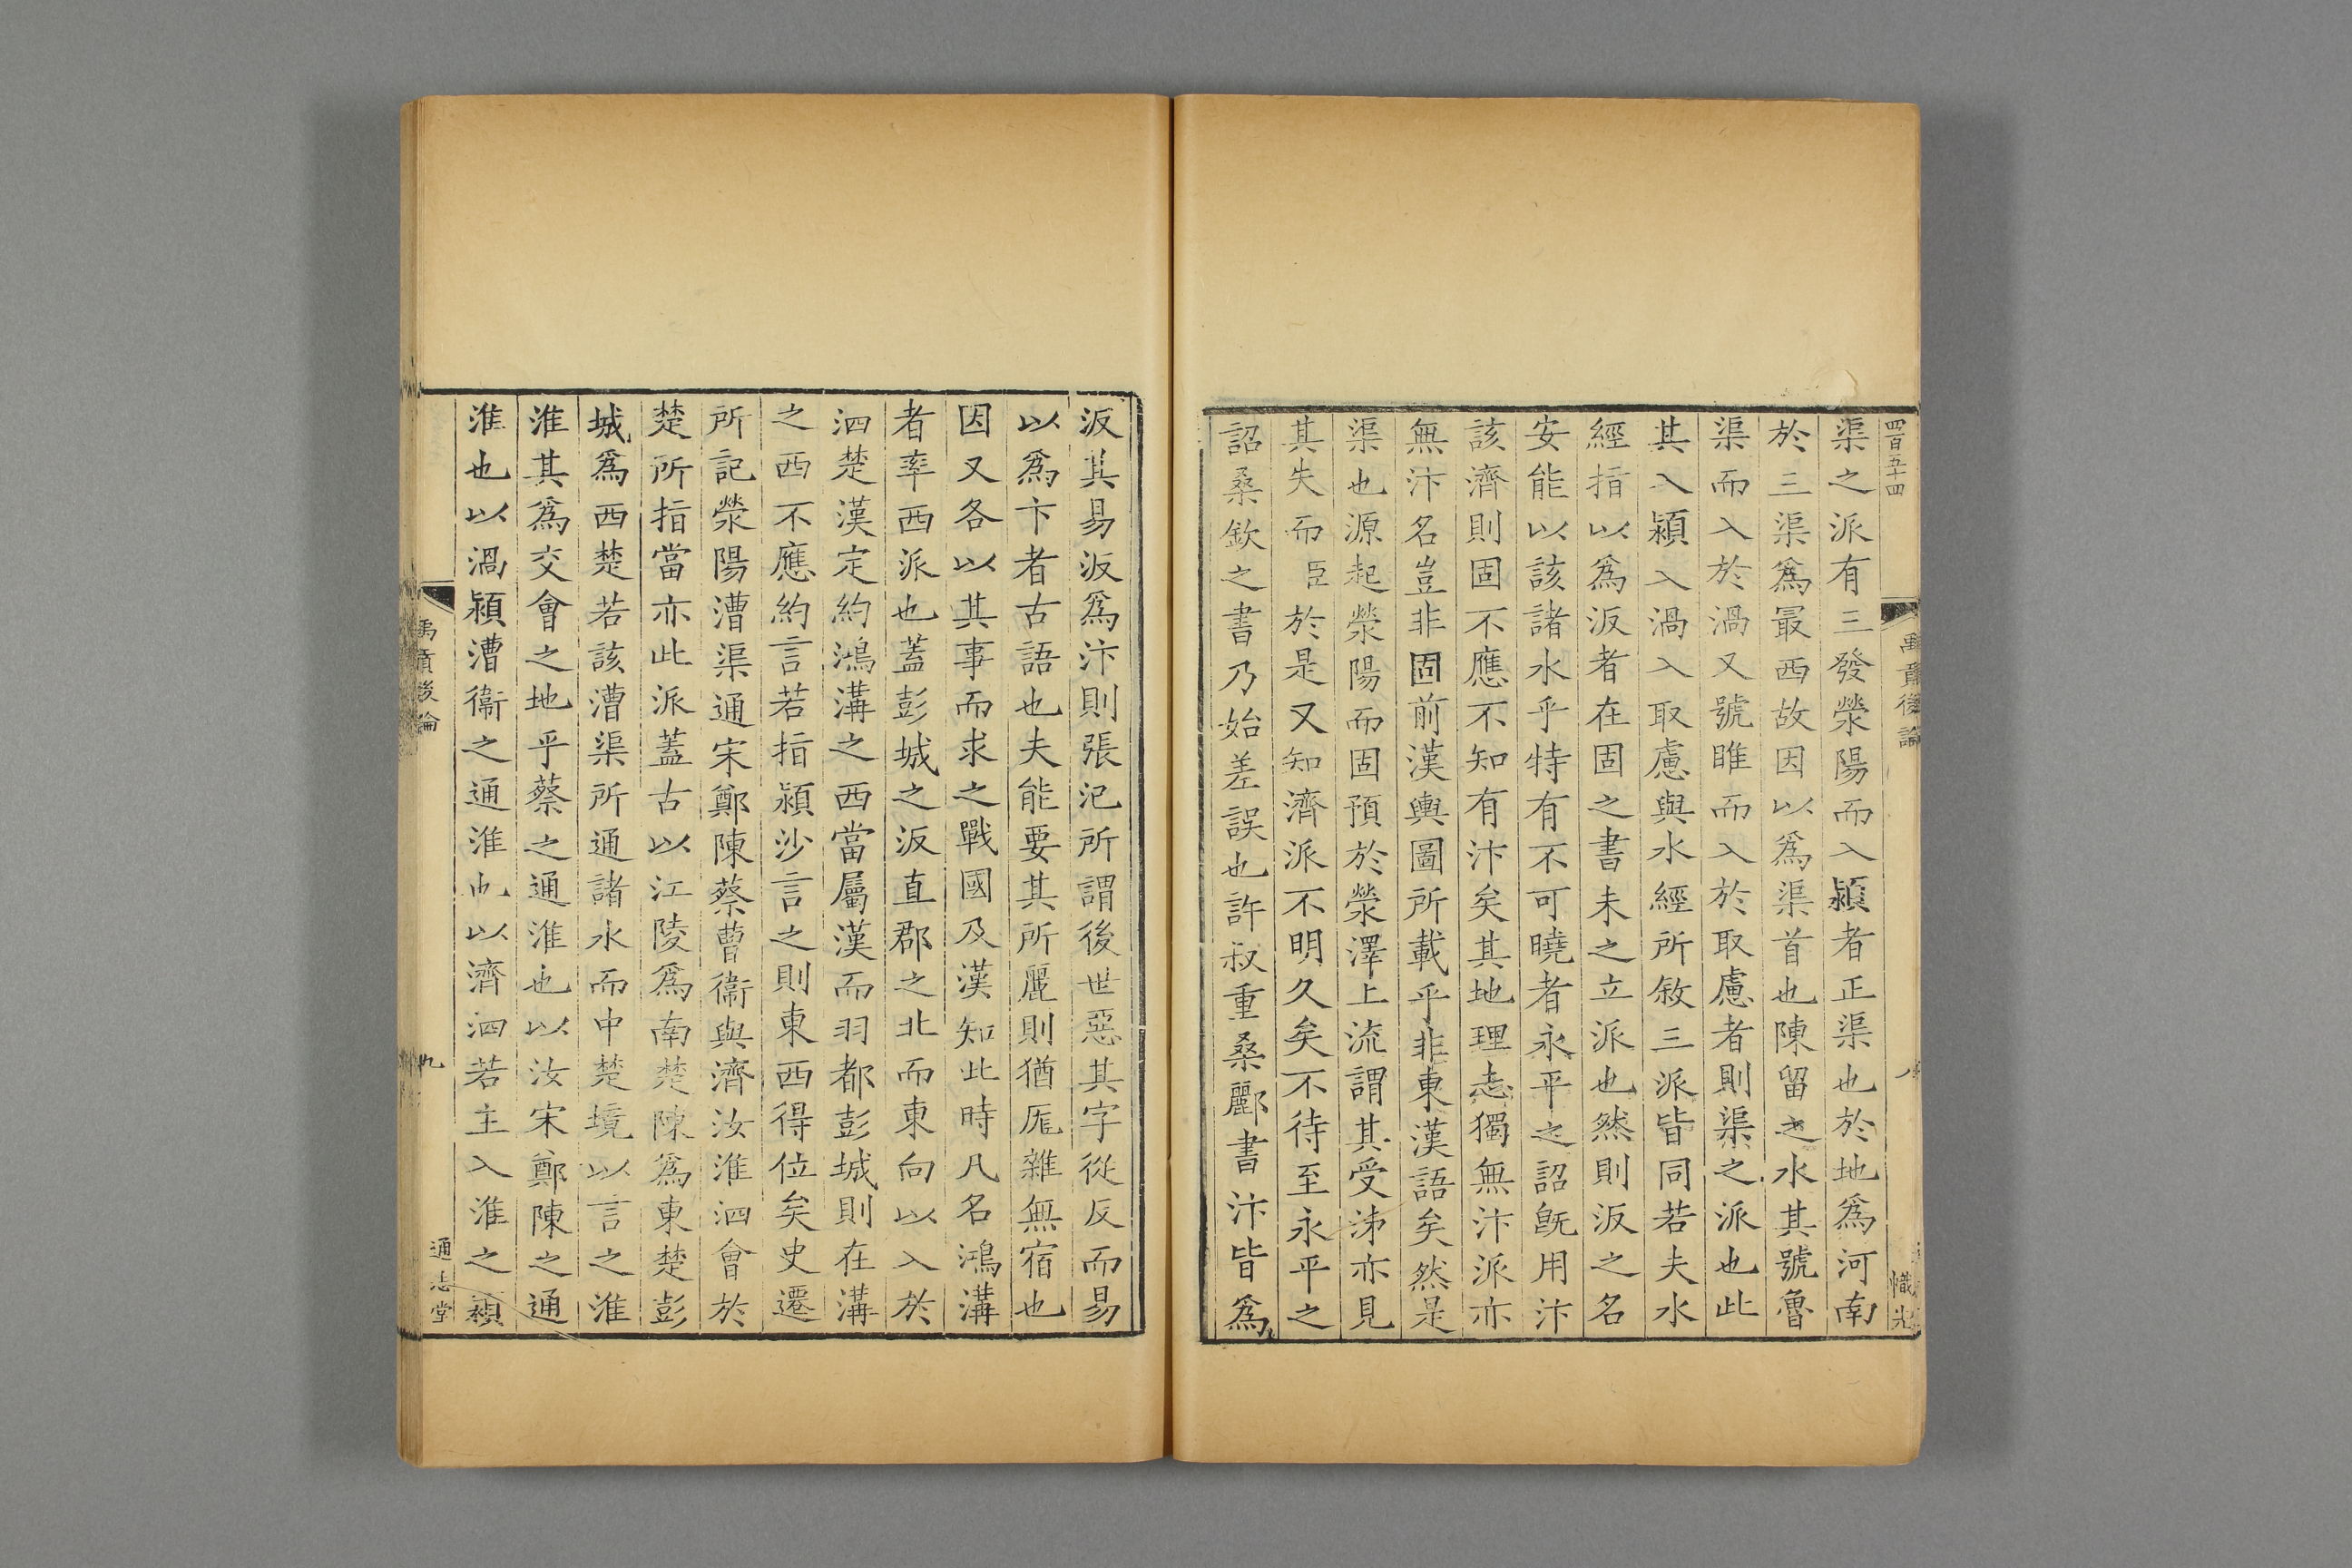 四百五十四
禹貢後論
渠之派有三發滎陽而入潁者正渠也於地爲河南
於三渠爲最西故因以爲渠首也陳留之水其號魯
渠而入於渦又號睢而入於取慮者則渠之派也此
其入潁入渦入取慮與水經所敘三派皆同若夫水
經指以爲汳者在固之書未之立派也然則汳之名
安能以該諸水乎特有不可曉者永平之詔旣用汴
該濟則固不應不知有汴矣其地理志獨無汴派亦
無汴名豈非固前漢輿圖所載乎非東漢語矣然是
渠也源起滎陽而固預於滎澤上流謂其受泲亦見
其失而臣於是又知濟派不明久矣不待至永平之
詔桑欽之書乃始差誤也許叔重桑酈書汴皆爲
汳其易汳爲汴則張洎所謂後世惡其字從反而易
以爲卞者古語也夫能要其所麗則猶厖雜無宿也
因又各以其事而求之戰國及漢知此時凡名鴻溝
者率西派也蓋彭城之汳直郡之北而東向以入於
泗楚漢定約鴻溝之西當屬漢而羽都彭城則在溝
之西不應約言若指潁沙言之則東西得位矣史遷
所記滎陽漕渠通宋鄭陳蔡曹衞與濟汝淮泗會於
楚所指當亦此派蓋古以江陵爲南楚陳爲東楚彭
城爲西楚若該漕渠所通諸水而中楚境以言之淮
淮其爲交會之地乎蔡之通淮也以汝宋鄭陳之通
淮也以渦潁漕衞之通淮也以濟泗若主入淮之潁
禹貢後論
九
通志堂